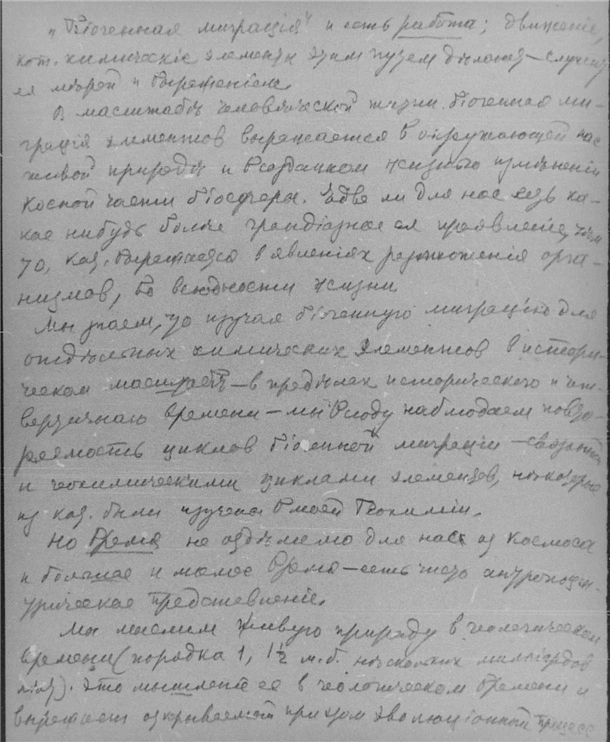 „Біогенная миграція" и есть работа; движеніе,
кот. химическіе элементы этим путем делают – служит
ея мерой и выраженіем.
В масштабе человеческой жизни біогенная ми-
грація элементов выражается в окружающей нас
живой природе и в созданном жизнью измененіи
косной части біосферы. Едва ли для нас есть ка-
кое нибудь более грандіозное ея проявленіе, чем
то, кот. выражается в явленіях размноженія орга-
низмов, во всюдности жизни
Мы знаем, что изучая біогенную миграцію для
отдельных химических элементов в истори-
ческом масштабе – в пределах исторического и
вертичнаго времени – мы всюду наблюдаем повто-
ряемость циклов біогенной миграціи – связанных
и геохимическими циклами элементов, некоторые
из кот. были изучены в моей Геохиміи.
Но Время не отделимо для нас от Космоса
и большое и малое Время – есть чисто антропоцен-
трическое представленіе.
Мы мыслим живую природу в геологическом
времени (порядка 1, 1½ м.б. нескольких милліардов
лет). Это мышленіе ея в геологическом времени и
выражает открываемый при этом эволюціонный процесс